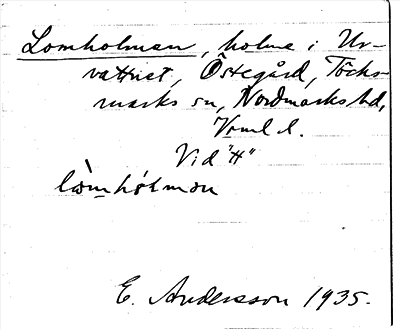 Lomholmen, holme i Ur-
vattnet, Östegård, Töcks-
marks sn, Nordmarks hd,
Vrml l.
Vid "H"
lòmhòlmən
E. Andersson 1935.